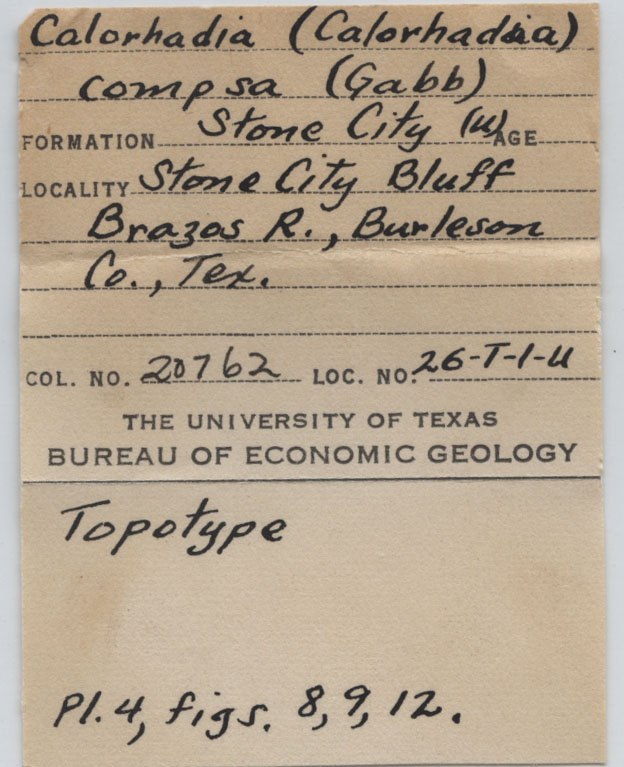 Calorhadia (Calorhadia)
compsa (Gabb)
FORMATION Stone City (u) AGE
LOCALITY Stone City Bluff
Brazos R., Burleson
Co., Tex.
COL. NO. 20762 LOC. NO. 26-T-1-U
THE UNIVERSITY OF TEXAS
BUREAU OF ECONOMIC GEOLOGY
Topotype
Pl. 4, figs. 8, 9, 12.